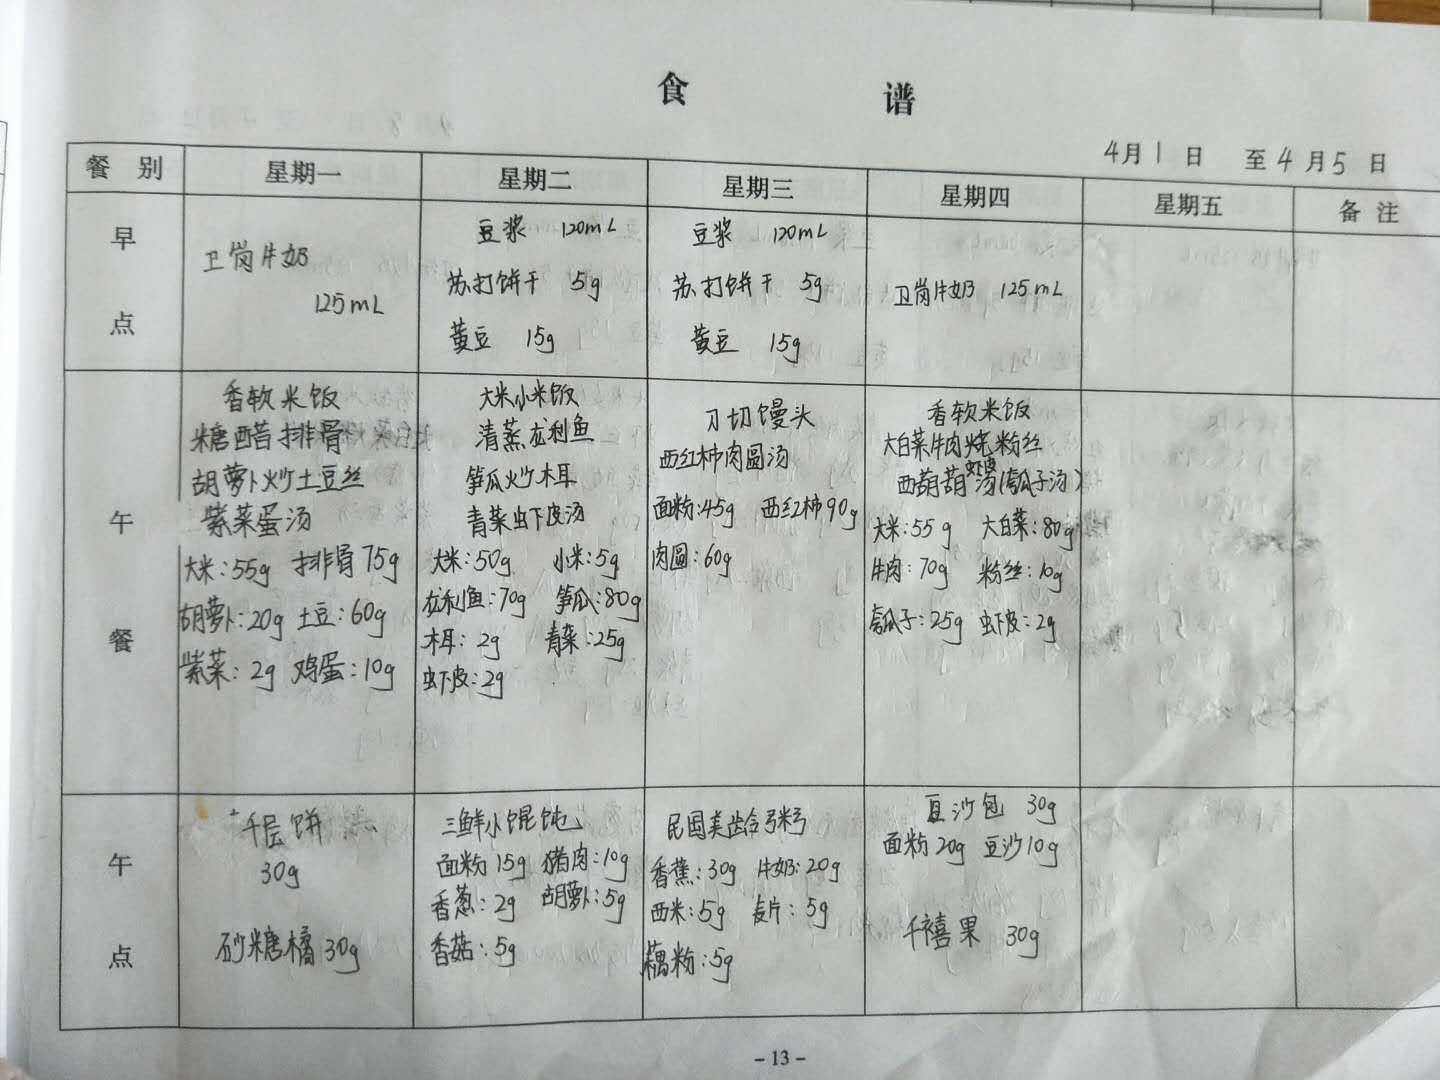 食 谱
4月1日 至4月5日
餐 别 星期一 星期二 星期三 星期四 星期五 备 注
早点
卫岗牛奶
125mL
豆浆 120mL
苏打饼干 5g
黄豆 15g
豆浆 120mL
苏打饼干 5g
黄豆 15g
卫岗牛奶 125mL
午餐
香软米饭
糖醋排骨
胡萝卜炒土豆丝
紫菜蛋汤
大米:55g 排骨75g
胡萝卜:20g 土豆:60g
紫菜:2g 鸡蛋:10g
大米小米饭
清蒸龙利鱼
笋瓜炒木耳
青菜虾皮汤
大米:50g 小米:5g
龙利鱼:70g 笋瓜:80g
木耳:2g 青菜:25g
虾皮:2g
刀切馒头
西红柿肉圆汤
面粉:45g 西红柿90g
肉圆:60g
香软米饭
大白菜牛肉烧粉丝
西葫葫虾皮汤(瓠瓜子汤)
大米:55g 大白菜:80g
牛肉:70g 粉丝:10g
瓠瓜子:25g 虾皮:2g
午点
千层饼
30g
砂糖橘30g
三鲜小馄饨
面粉15g 猪肉:10g
香葱:2g 胡萝卜:5g
香菇:5g
民国美龄粥
香蕉:30g 牛奶:20g
西米:5g 麦片:5g
藕粉:5g
豆沙包 30g
面粉20g 豆沙10g
千禧果 30g
- 13 -